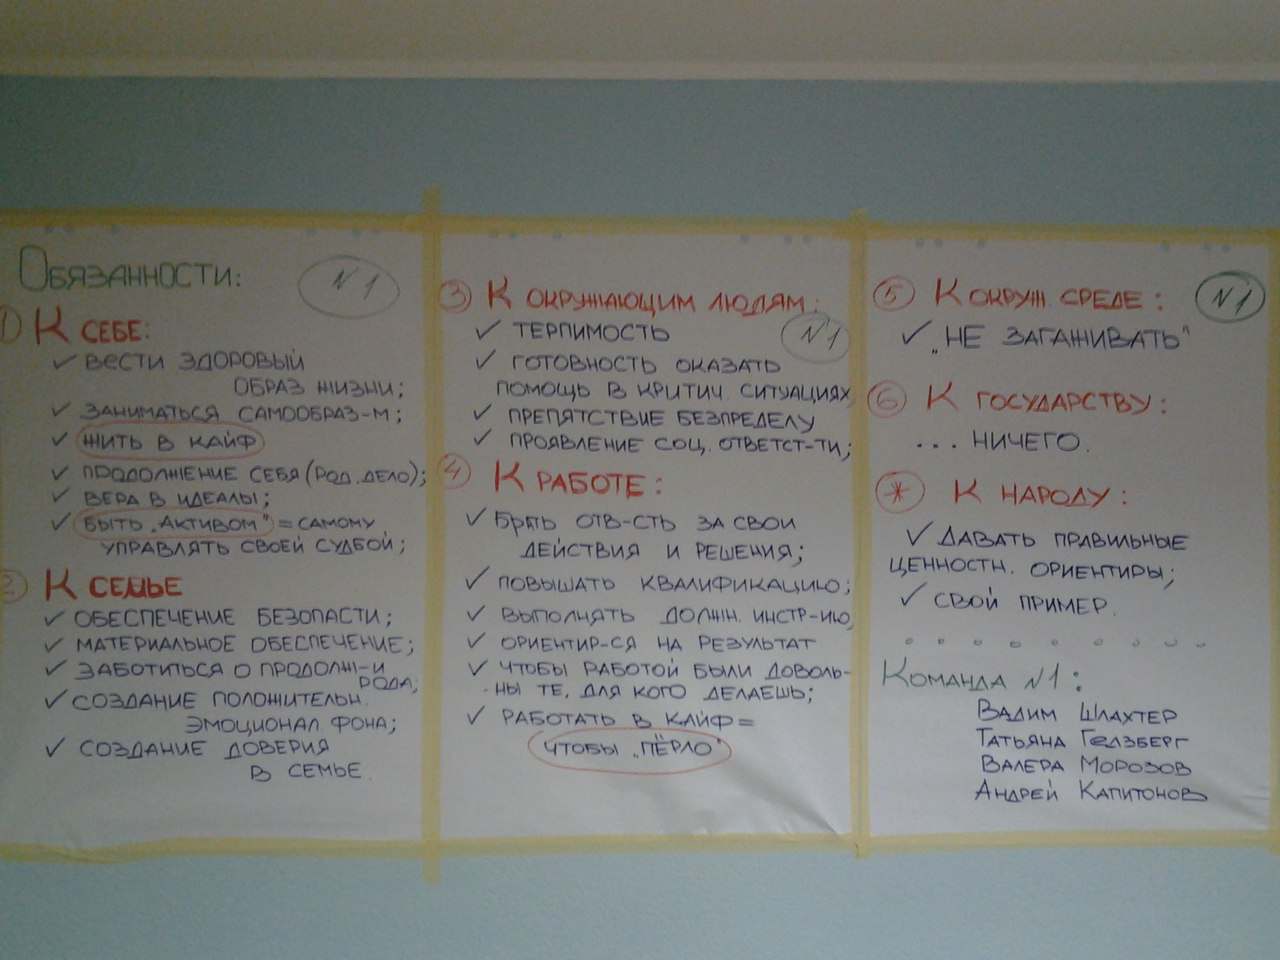 Обязанности:
N 1
① К СЕБЕ:
✓ ВЕСТИ ЗДОРОВЫЙ
ОБРАЗ ЖИЗНИ;
✓ ЗАНИМАТЬСЯ САМООБРАЗ-М;
✓ ЖИТЬ В КАЙФ
✓ ПРОДОЛЖЕНИЕ СЕБЯ (РОД. ДЕЛО);
✓ ВЕРА В ИДЕАЛЫ;
✓ БЫТЬ „АКТИВОМ" = САМОМУ
УПРАВЛЯТЬ СВОЕЙ СУДБОЙ;
② К СЕМЬЕ
✓ ОБЕСПЕЧЕНИЕ БЕЗОПАСТИ;
✓ МАТЕРИАЛЬНОЕ ОБЕСПЕЧЕНИЕ;
✓ ЗАБОТИТЬСЯ О ПРОДОЛЖ-И
РОДА;
✓ СОЗДАНИЕ ПОЛОЖИТЕЛЬН.
ЭМОЦИОНАЛ ФОНА;
✓ СОЗДАНИЕ ДОВЕРИЯ
В СЕМЬЕ.
③ К ОКРУЖАЮЩИМ ЛЮДЯМ:
✓ ТЕРПИМОСТЬ
N 1
✓ ГОТОВНОСТЬ ОКАЗАТЬ
ПОМОЩЬ В КРИТИЧ. СИТУАЦИЯХ,
✓ ПРЕПЯТСТВИЕ БЕЗПРЕДЕЛУ
✓ ПРОЯВЛЕНИЕ СОЦ. ОТВЕТСТ-ТИ;
④ К РАБОТЕ:
✓ БРАТЬ ОТВ-СТЬ ЗА СВОИ
ДЕЙСТВИЯ И РЕШЕНИЯ;
✓ ПОВЫШАТЬ КВАЛИФИКАЦИЮ;
✓ ВЫПОЛНЯТЬ ДОЛЖН. ИНСТР-ИЮ,
✓ ОРИЕНТИР-СЯ НА РЕЗУЛЬТАТ
✓ ЧТОБЫ РАБОТОЙ БЫЛИ ДОВОЛЬ-
НЫ ТЕ, ДЛЯ КОГО ДЕЛАЕШЬ;
✓ РАБОТАТЬ В КАЙФ =
ЧТОБЫ „ПЁРЛО"
⑤ К ОКРУЖ. СРЕДЕ:
N 1
✓ „НЕ ЗАГАЖИВАТЬ"
⑥ К ГОСУДАРСТВУ:
... НИЧЕГО.
* К НАРОДУ:
✓ ДАВАТЬ ПРАВИЛЬНЫЕ
ЦЕННОСТН. ОРИЕНТИРЫ;
✓ СВОЙ ПРИМЕР.
КОМАНДА N1:
ВАДИМ ШЛАХТЕР
ТАТЬЯНА ГЕЛЗБЕРГ
ВАЛЕРА МОРОЗОВ
АНДРЕЙ КАПИТОНОВ